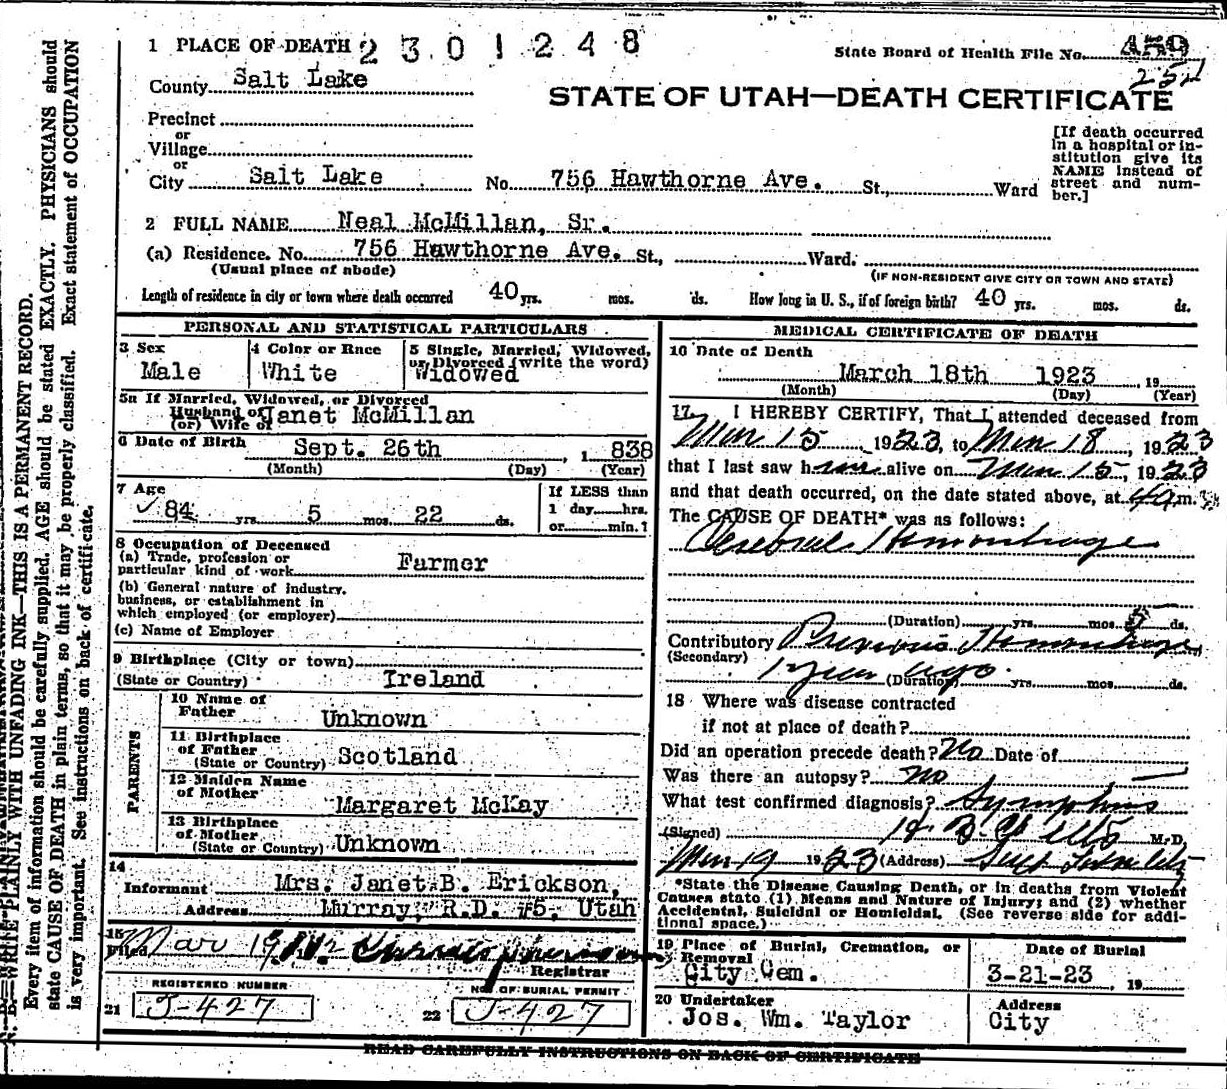 1 PLACE OF DEATH 2 3 0 1 2 4 8
State Board of Health File No. 459
251
County Salt Lake
STATE OF UTAH—DEATH CERTIFICATE
Precinct
or
Village
or
City Salt Lake No. 756 Hawthorne Ave. St., Ward
[If death occurred
in a hospital or in-
stitution give its
NAME instead of
street and num-
ber.]
2 FULL NAME Neal McMillan, Sr.
(a) Residence. No. 756 Hawthorne Ave. St., Ward.
(Usual place of abode) (IF NON-RESIDENT GIVE CITY OR TOWN AND STATE)
Length of residence in city or town where death occurred 40 yrs. mos. ds. How long in U. S., if of foreign birth? 40 yrs. mos. ds.
PERSONAL AND STATISTICAL PARTICULARS
3 Sex Male
4 Color or Race White
5 Single, Married, Widowed,
or Divorced (write the word)
Widowed
5a If Married, Widowed, or Divorced
Husband of
(or) Wife of Janet McMillan
6 Date of Birth Sept. 26th , 1 838
(Month) (Day) (Year)
7 Age
84 yrs. 5 mos. 22 ds.
If LESS than
1 day, hrs.
or min.?
8 Occupation of Deceased
(a) Trade, profession or
particular kind of work Farmer
(b) General nature of industry,
business, or establishment in
which employed (or employer)
(c) Name of Employer
9 Birthplace (City or town)
(State or Country) Ireland
PARENTS
10 Name of
Father Unknown
11 Birthplace
of Father
(State or Country) Scotland
12 Maiden Name
of Mother Margaret McKay
13 Birthplace
of Mother
(State or Country) Unknown
14
Informant Mrs. Janet B. Erickson,
Address Murray, R.D. #5, Utah
15
Filed Mar 19
Registrar
REGISTERED NUMBER
21 J-427
NO. OF BURIAL PERMIT
22 J-427
MEDICAL CERTIFICATE OF DEATH
16 Date of Death
March 18th 1923 , 19
(Month) (Day) (Year)
17 I HEREBY CERTIFY, That I attended deceased from
Mar 15 , 1923, to Mar 18 , 1923
that I last saw him alive on Mar 15, 1923
and that death occurred, on the date stated above, at 4 a m.
The CAUSE OF DEATH* was as follows:
Cerebral Hemorrhage
(Duration) yrs. mos. 5 ds.
Contributory Previous Hemorrhage
(Secondary)
1 year ago.
(Duration) yrs. mos. ds.
18 Where was disease contracted
if not at place of death?
Did an operation precede death? No Date of
Was there an autopsy? no
What test confirmed diagnosis? Symptoms
(Signed) M.D.
Mar 19 1923 (Address)
*State the Disease Causing Death, or in deaths from Violent
Causes state (1) Means and Nature of Injury; and (2) whether
Accidental, Suicidal or Homicidal. (See reverse side for addi-
tional space.)
19 Place of Burial, Cremation, or
Removal
City Cem.
Date of Burial
3-21-23 , 19
20 Undertaker
Jos. Wm. Taylor
Address
City
READ CAREFULLY INSTRUCTIONS ON BACK OF CERTIFICATE
N. B.—WRITE PLAINLY WITH UNFADING INK—THIS IS A PERMANENT RECORD.
Every item of information should be carefully supplied. AGE should be stated EXACTLY. PHYSICIANS should
state CAUSE OF DEATH in plain terms, so that it may be properly classified. Exact statement of OCCUPATION
is very important. See instructions on back of certificate.